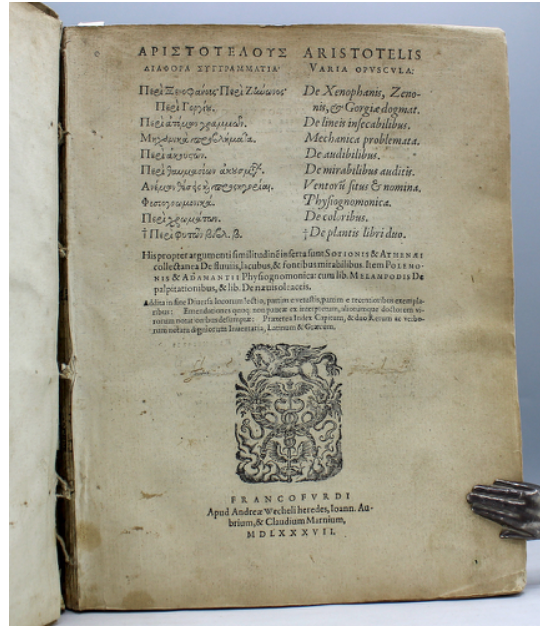 ΑΡΙΣΤΟΤΕΛΟΥΣ
ΔΙΑΦΟΡΑ ΣΥΓΓΡΑΜΜΑΤΙΑ·
Περὶ Ξενοφάνους· Περὶ Ζήνωνος·
Περὶ Γοργίου.
Περὶ ἀτόμων γραμμῶν.
Μηχανικὰ προβλήματα.
Περὶ ἀκουστῶν.
Περὶ θαυμασίων
Φυσιογνωμονικά.
Περὶ χρωμάτων.
† Περὶ Φυτῶν βιβλ. β.
ARISTOTELIS
VARIA OPVSCVLA:
De Xenophanis, Zeno-
nis, & Gorgiæ dogmat.
De lineis insecabilibus.
Mechanica problemata.
De audibilibus.
De mirabilibus auditis.
Ventorū situs & nomina.
Physiognomonica.
De coloribus.
‡ De plantis libri duo.
His propter argumenti similitudinē inserta sunt SOTIONIS & ATHENÆI
collectanea De fluuiis, lacubus, & fontibus mirabilibus. Item POLEMO-
NIS & ADAMANTII Physiognomonica: cum lib. MELAMPODIS De
palpitationibus, & lib. De næuis oleaceis.
Addita in fine Diuersa locorum lectio, partim e vetustis, partim e recentioribus exempla-
ribus: Emendationes quoq. non paucæ ex interpretum, aliorumque doctorum vi-
rorum notationibus Præterea Index Capitum, & duo Rerum ac verbo-
rum notatu digniorum Inuentaria, Latinum & Græcum.
FRANCOFVRDI
Apud Andreæ Wecheli heredes, Ioann. Au-
brium, & Claudium Marnium,
MDLXXXVII.